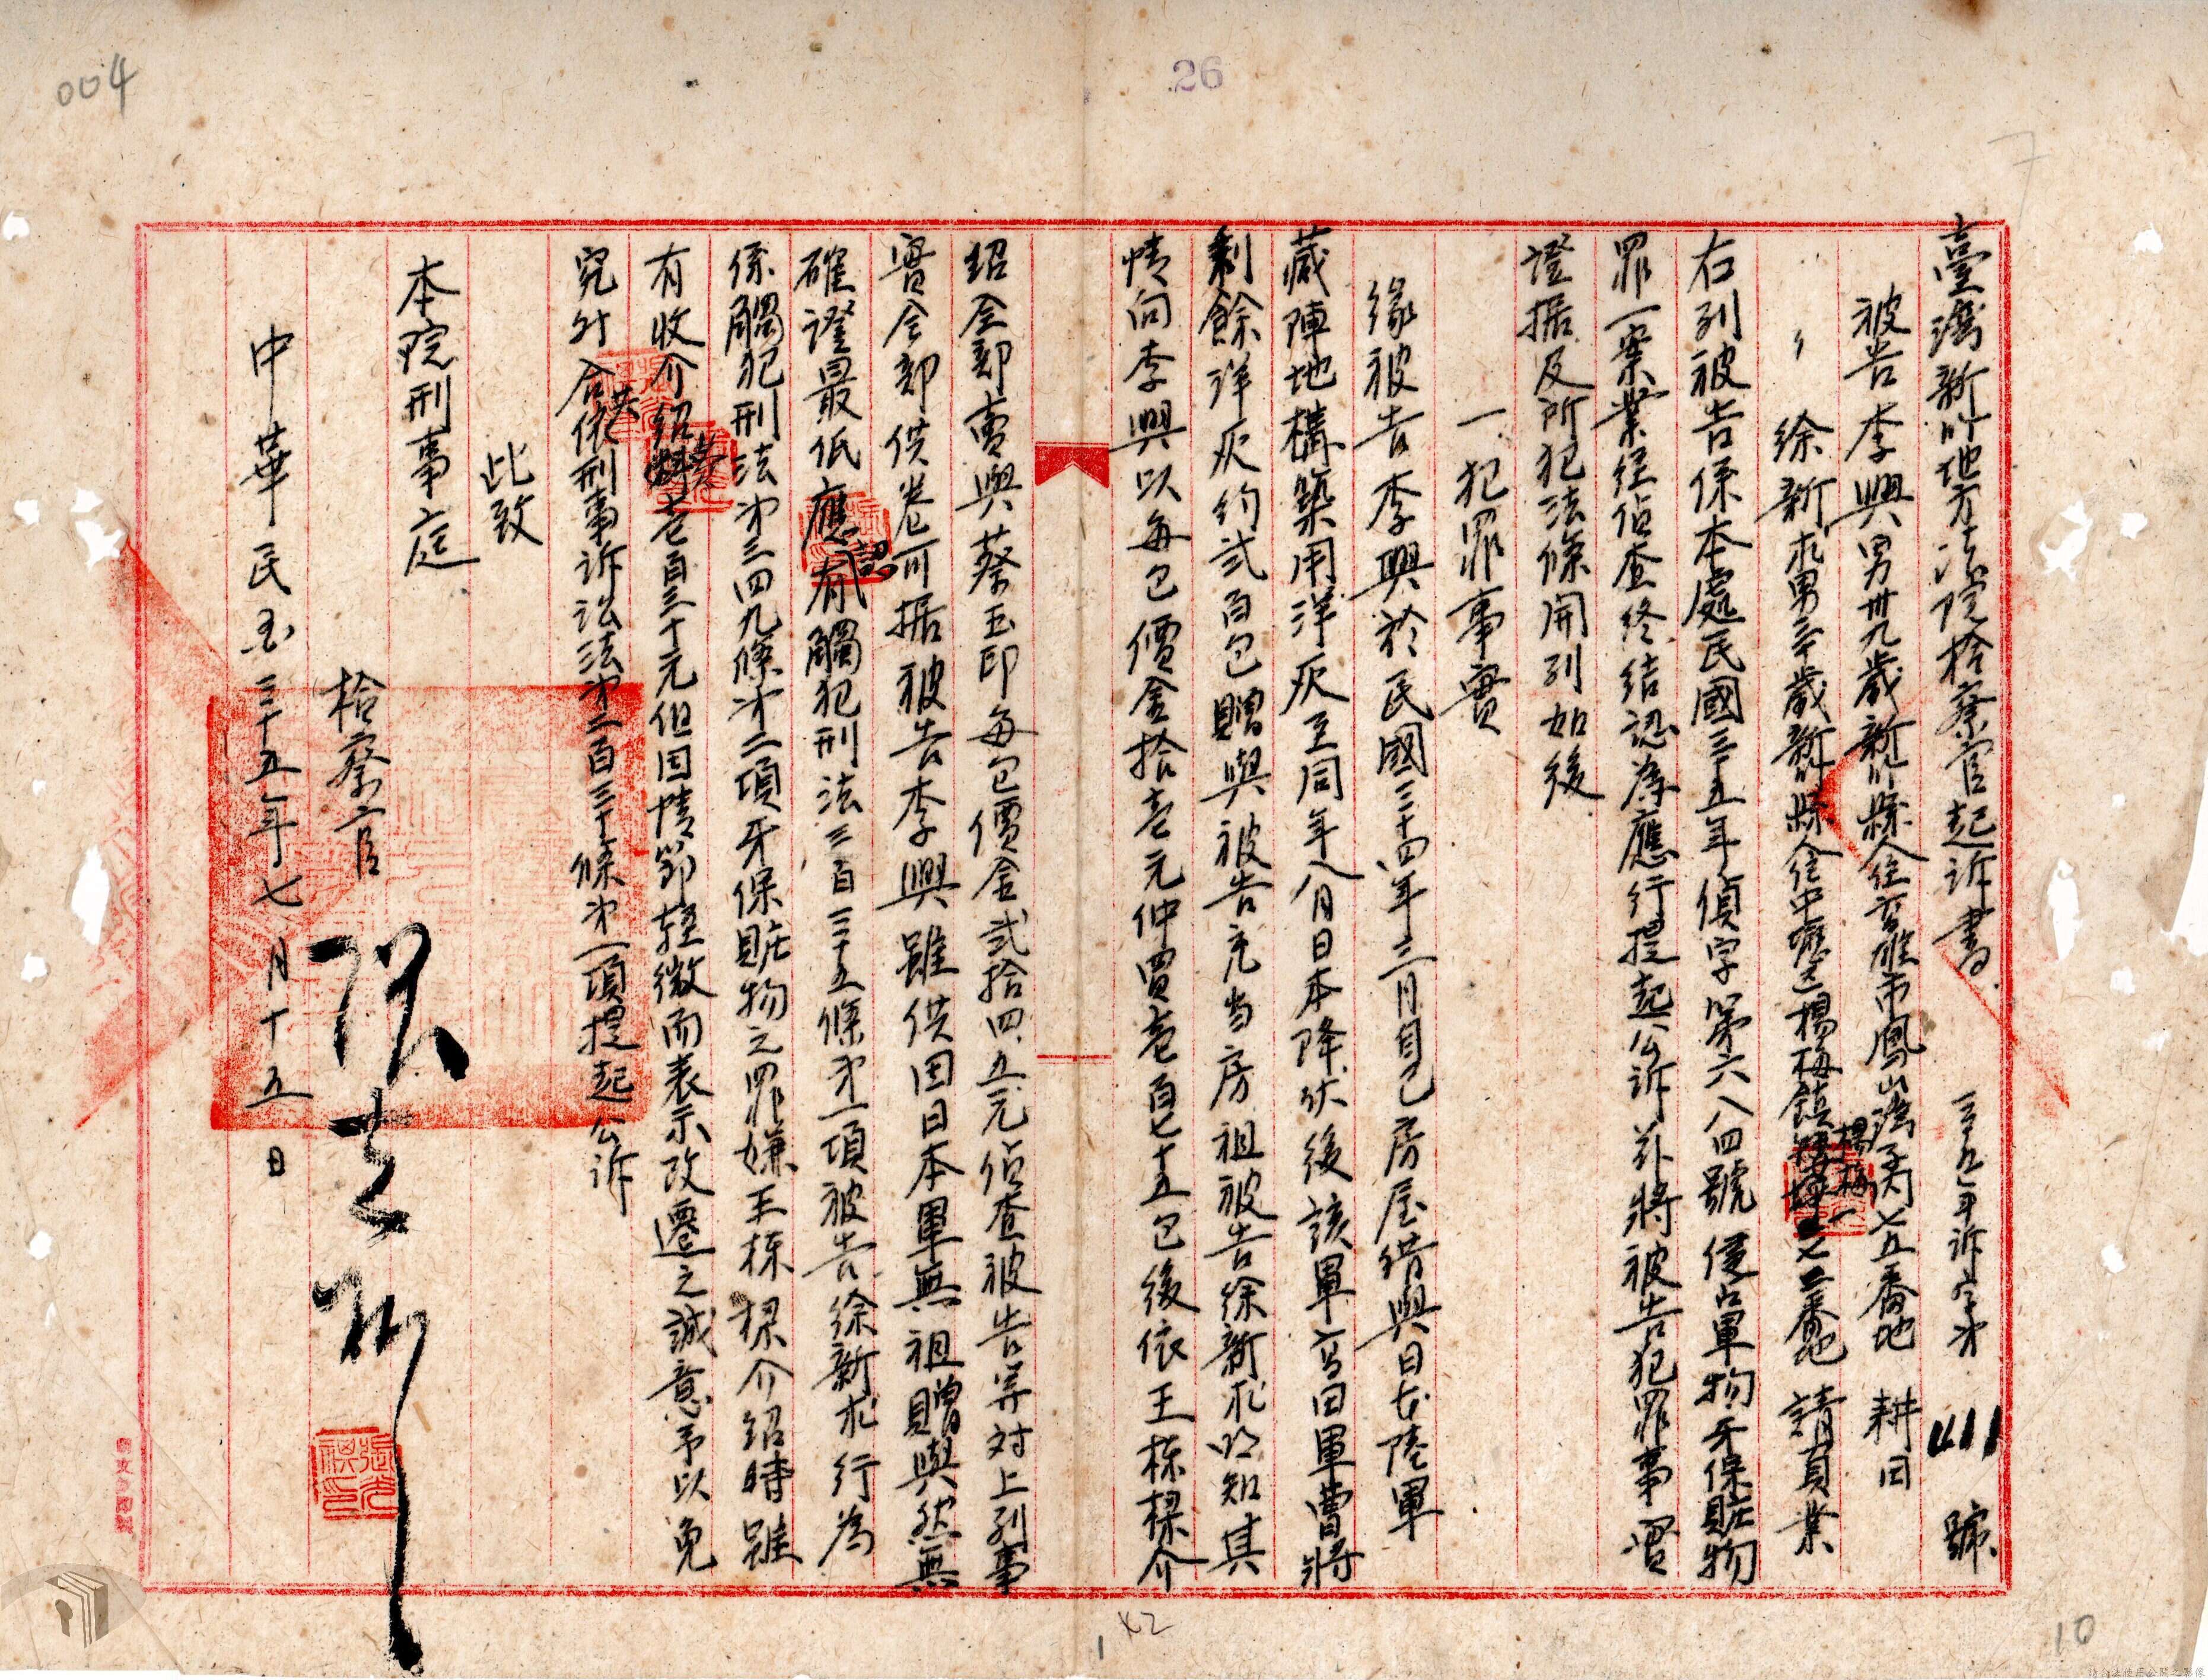 004
26
臺灣新竹地方法院檢察官起訴書 三五年訴字第 號
被告 李興 男 卅九歲 新竹縣人 住高雄市鳳山灣子內七五番地 耕田
〃 徐新求 男 三十歲 新竹縣人 住中壢區楊梅鎮楊梅一七二番地 請負業
右列被告係本處民國三十五年偵字第六八四號侵占軍物牙保贓物
罪一案業經偵查終結認為應行提起公訴茲將被告犯罪事實
證据及所犯法條開列如後
一、犯罪事實
緣被告李興於民國三十四年三月自己房屋借與日本陸軍
藏陣地構築用洋灰至同年八月日本降伏後該軍高田軍曹將
剩餘洋灰約弍百包贈與被告充当房租被告徐新求明知其
情向李興以每包價金拾壱元仲買壱百七十五包後依王棟樑介
紹全部賣與蔡玉印每包價金弍拾四、五元偵查被告等对上列事
實全部供卷可据被告李興雖供因日本軍無租贈與然無
確證最低應認有觸犯刑法三百三十五條第一項被告徐新求行為
係觸犯刑法第三四九條第二項牙保贓物之罪嫌王棟樑介紹時雖
有收介紹料壱百三十元但因情節輕微而表示改遷之誠意予以免
究外合依刑事訴訟法第二百三十條第一項提起公訴
此致
本院刑事庭
檢察官
中華民國三十五年七月十五日
x2
1
10